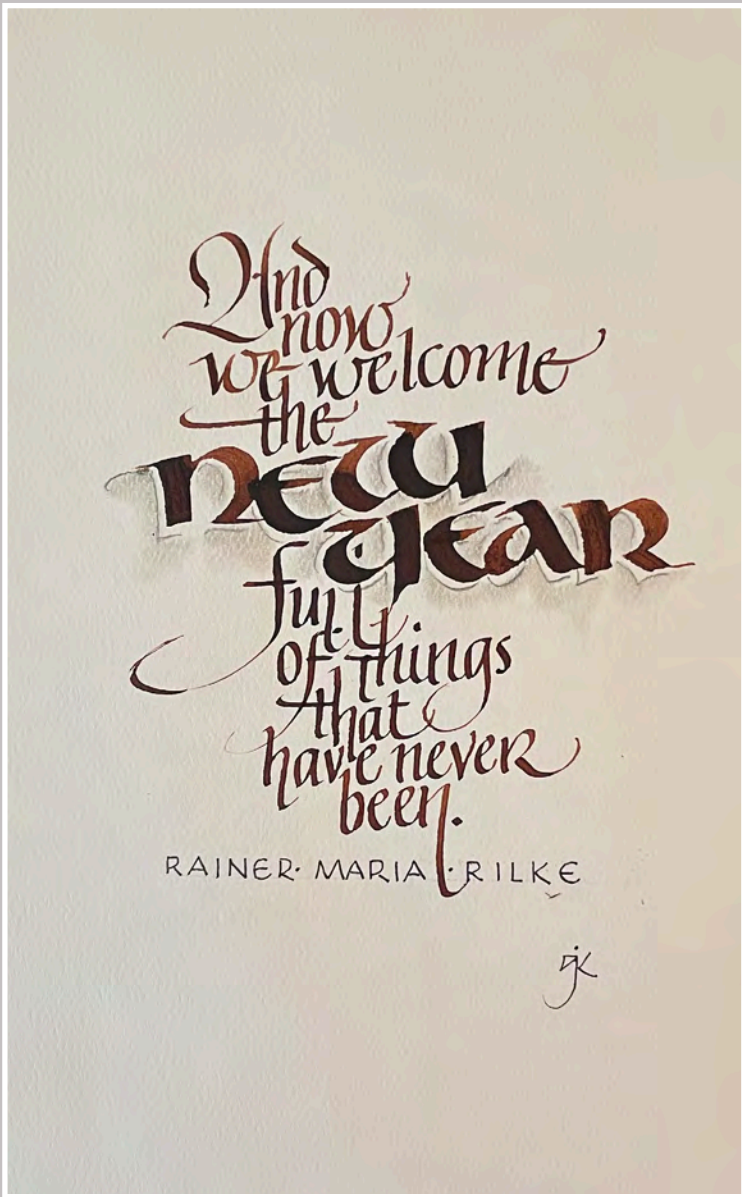 And
now
we welcome
the
NEW
YEAR
full
of things
that
have never
been.
RAINER · MARIA · RILKE